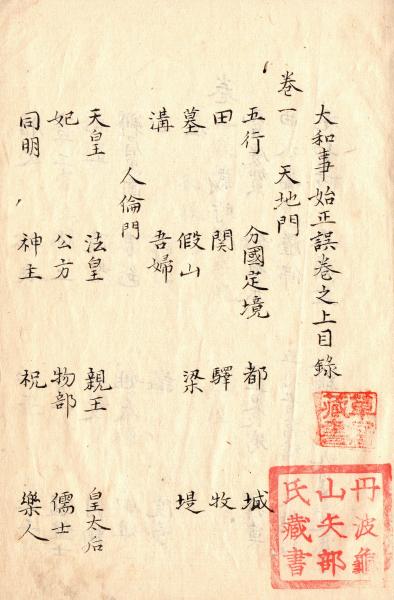 大和事始正誤卷之上目錄
卷一 天地門
五行 分國定境 都 城
田 関 驛 牧
墓 假山 梁 堤
溝 吾婦
人倫門
天皇 法皇 親王 皇太后
妃 公方 物部 儒士
同明 神主 祝 樂人
丹波龜
山矢部
氏藏書